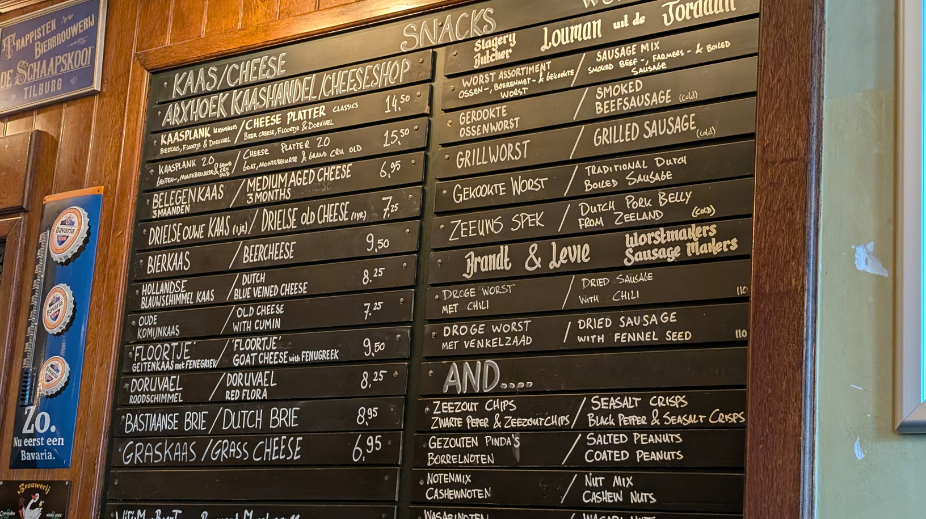 TRAPPISTEN
BIERBROUWERIJ
DE SCHAAPSKOOI
TILBURG
Bavaria
Bavaria
Zo.
Nu eerst een
Bavaria.
Brouwerij
SNACKS
KAAS/CHEESE
KAASHANDEL/CHEESESHOP
KAASPLANK / CHEESE PLATTER CLASSICS 14,50
BIERKAAS, FLOORTJE & DORUVAEL BEER CHEESE, FLOORTJE & DORUVAEL
KAASPLANK 2.0 / CHEESE PLATTER 2.0 15,50
GOAT, & GRAND CRU OLD
BELEGENKAAS / MEDIUM AGED CHEESE 6,95
3 MAANDEN 3 MONTHS
DRIELSE OUWE KAAS (1jr) / DRIELSE OLD CHEESE (1yr) 7,25
BIERKAAS / BEERCHEESE 9,50
HOLLANDSE / DUTCH 8,25
BLAUWSCHIMMEL KAAS BLUE VEINED CHEESE
OUDE / OLD CHEESE 7,25
KOMIJNKAAS WITH CUMIN
'FLOORTJE' / 'FLOORTJE' 9,50
GEITENKAAS met FENEGRIEK GOAT CHEESE with FENUGREEK
DORUVAEL / DORUVAEL 8,25
ROODSCHIMMEL RED FLORA
BASTIAANSE BRIE / DUTCH BRIE 8,95
GRASKAAS / GRASS CHEESE 6,95
Slagerij Louman uit de Jordaan
Butcher
WORST ASSORTIMENT / SAUSAGE MIX
OSSEN-, BOERENMET- & GEKOOKTE SMOKED BEEF-, FARMERS- & BOILED
WORST SAUSAGE
GEROOKTE / SMOKED
OSSENWORST BEEFSAUSAGE (cold)
GRILLWORST / GRILLED SAUSAGE (cold)
GEKOOKTE WORST / TRADITIONAL DUTCH
BOILED SAUSAGE
ZEEUWS SPEK / DUTCH PORK BELLY
FROM ZEELAND (cold)
Brandt & Levie Worstmakers
Sausage Makers
DROGE WORST / DRIED SAUSAGE
MET CHILI WITH CHILI 110
DROGE WORST / DRIED SAUSAGE
MET VENKELZAAD WITH FENNEL SEED 110
AND....
ZEEZOUT CHIPS / SEASALT CRISPS
ZWARTE PEPER & ZEEZOUT CHIPS BLACK PEPPER & SEASALT CRISPS
GEZOUTEN PINDA'S / SALTED PEANUTS
BORRELNOTEN COATED PEANUTS
NOTENMIX / NUT MIX
CASHEWNOTEN CASHEW NUTS